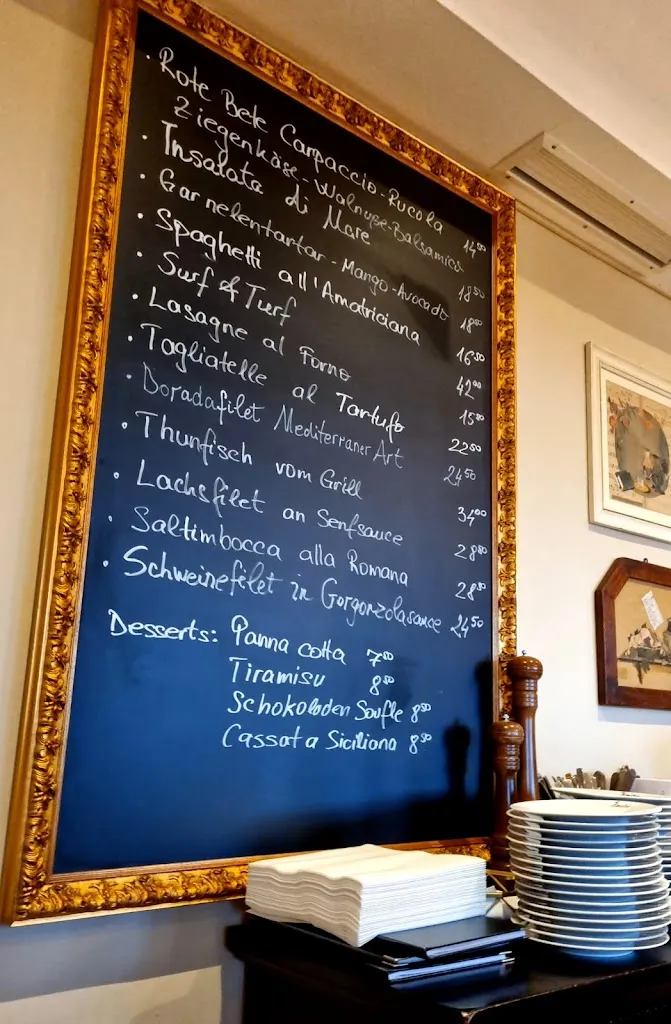 · Rote Bete Carpaccio-Rucola
Ziegenkäse-Walnüße-Balsamico 14⁰⁰
· Insalata di Mare 18⁵⁰
· Garnelentartar-Mango-Avocado 18⁵⁰
· Spaghetti all'Amatriciana 16⁵⁰
· Surf & Turf 42⁰⁰
· Lasagne al Forno 15⁵⁰
· Tagliatelle al Tartufo 22⁵⁰
· Doradafilet Mediterraner Art 24⁵⁰
· Thunfisch vom Grill 34⁰⁰
· Lachsfilet an Senfsauce 28⁵⁰
· Saltimbocca alla Romana 28⁵⁰
· Schweinefilet in Gorgonzolasauce 24⁵⁰
Desserts: Panna cotta 7⁵⁰
Tiramisu 8⁵⁰
Schokoladen Soufle 8⁵⁰
Cassata Siciliana 8⁵⁰